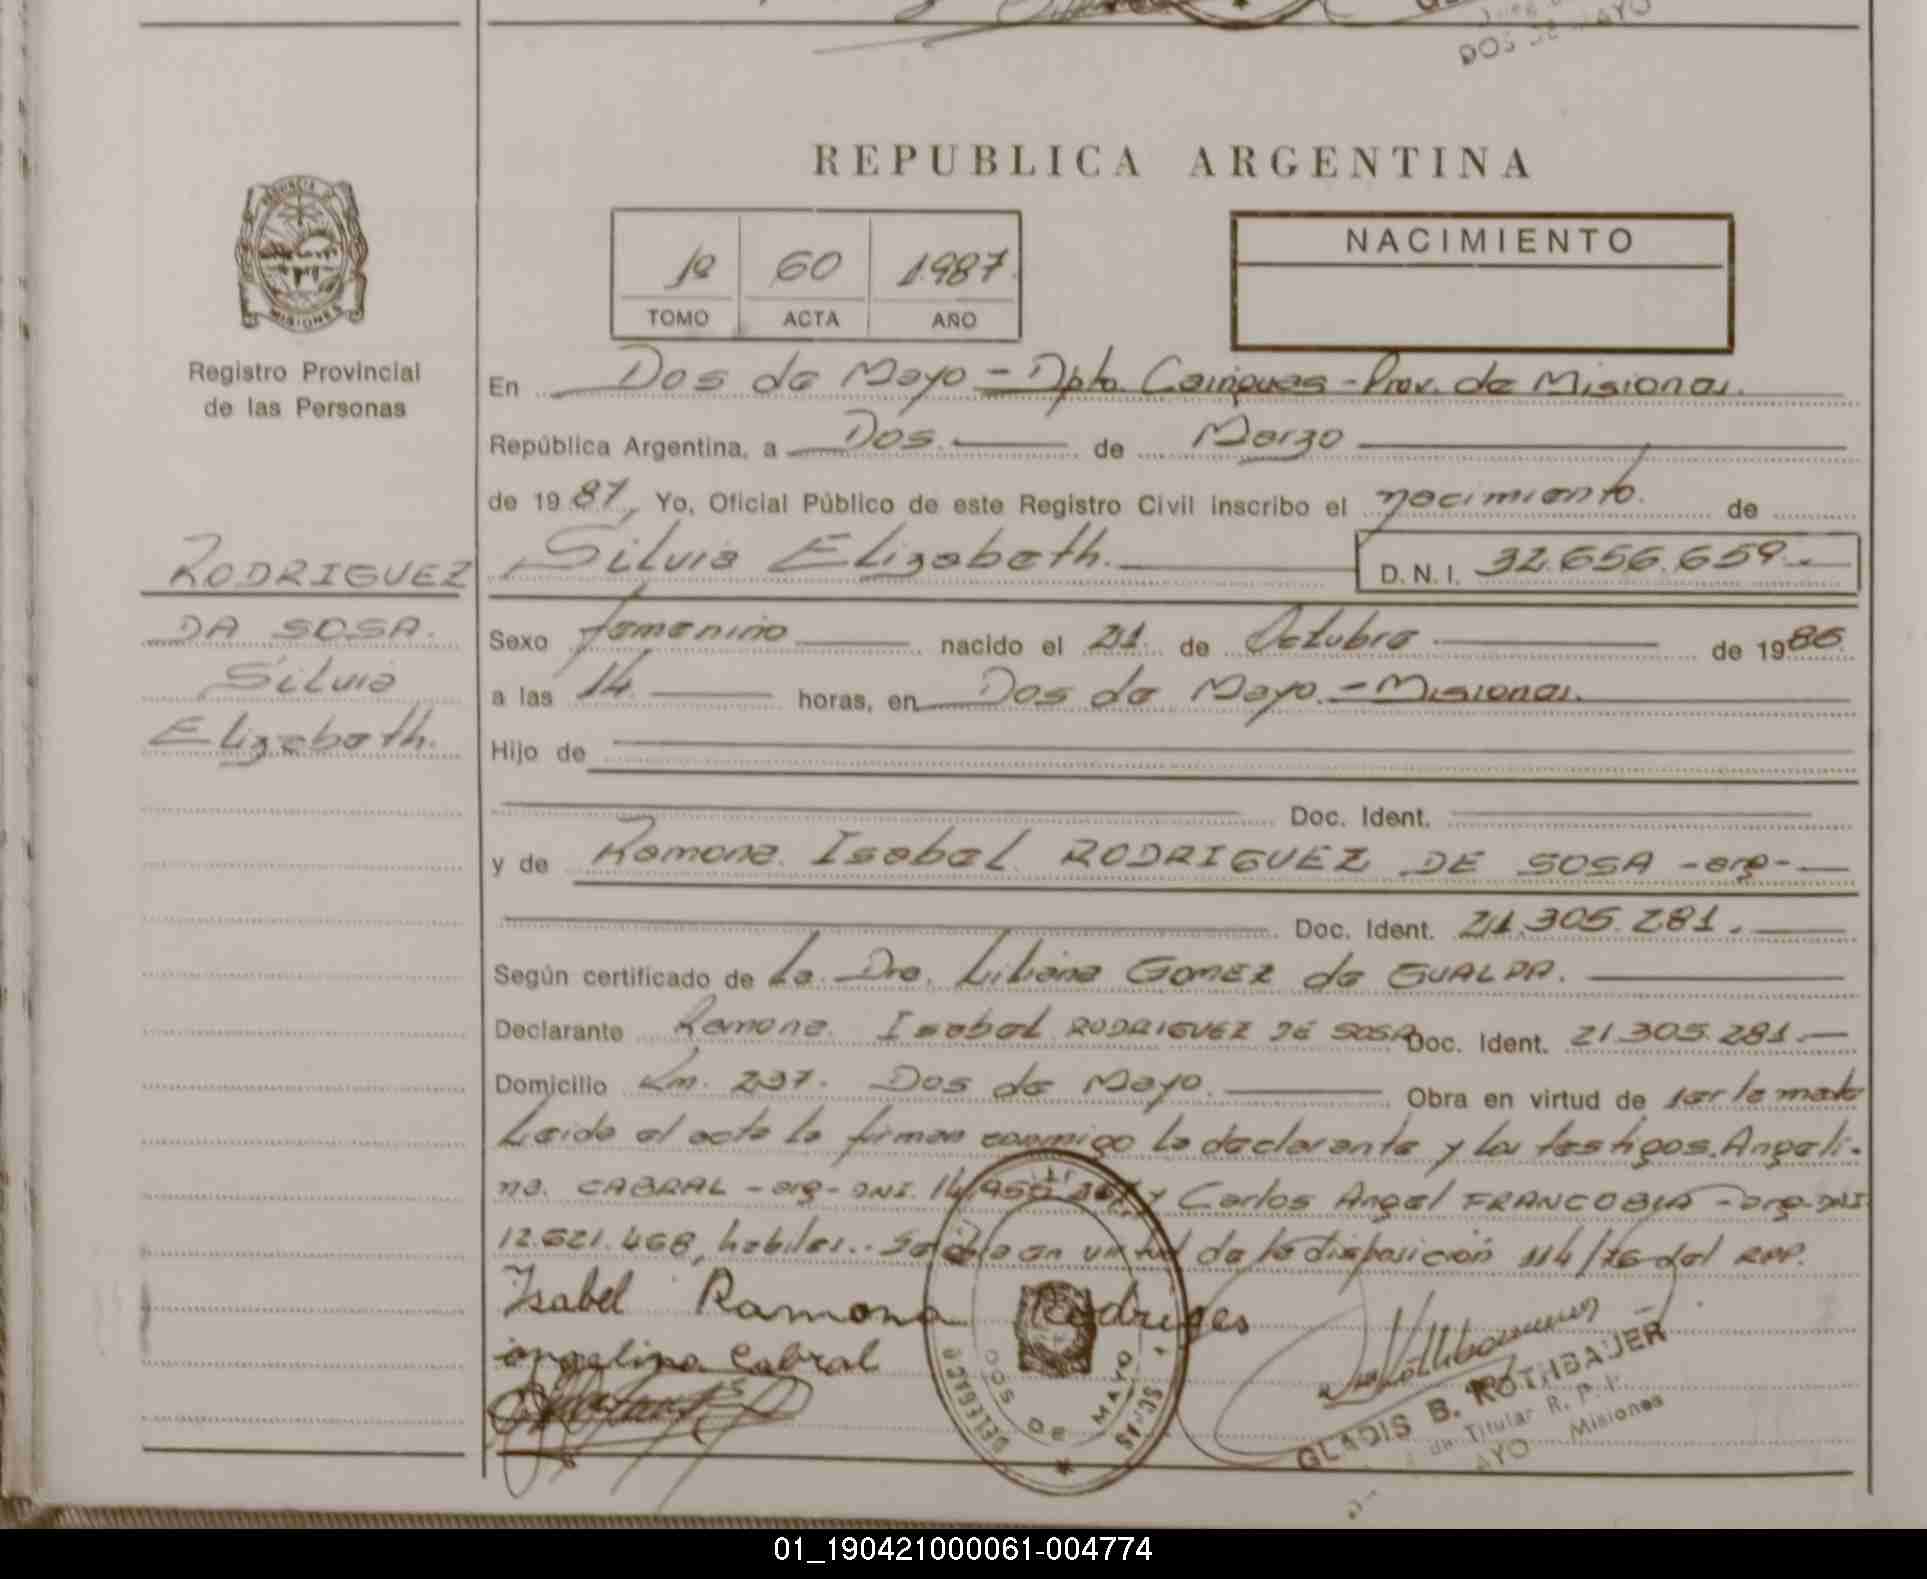 DOS DE MAYO
REPUBLICA ARGENTINA
PROVINCIA DE
MISIONES
Registro Provincial
de las Personas
1º 60 1987
TOMO ACTA AÑO
NACIMIENTO
En Dos de Mayo - Dpto. Cainguas - Prov. de Misiones.
República Argentina, a Dos. de Marzo
de 1987, Yo, Oficial Público de este Registro Civil inscribo el nacimiento. de
RODRIGUEZ
DA SOSA.
Silvia
Elizabeth.
Silvia Elizabeth. D.N.I. 32.656.659.-
Sexo femenino nacido el 21. de Octubre de 1986.
a las 14. horas, en Dos de Mayo. - Misiones.
Hijo de
Doc. Ident.
y de Ramona Isabel RODRIGUEZ DE SOSA - arg -
Doc. Ident. 21.305.281.
Según certificado de La Dra. Liliana GOMEZ de GUALDA.
Declarante Ramona Isabel RODRIGUEZ DE SOSA Doc. Ident. 21.305.281.-
Domicilio Km. 237. Dos de Mayo. Obra en virtud de ser la madre
Leida el acta la firman conmigo la declarante y los testigos. Angeli-
na. CABRAL - arg - DNI. y Carlos Angel FRANCOBIA - arg - DNI
12.621.468, habiles.. en virtud de la disposición 114/76 del RPP.
Isabel Ramona Rodrigues
angelina Cabral
DOS DE MAYO
GLADIS B. ROTHBAUER
Titular R. P. P.
AYO Misiones
01_190421000061-004774